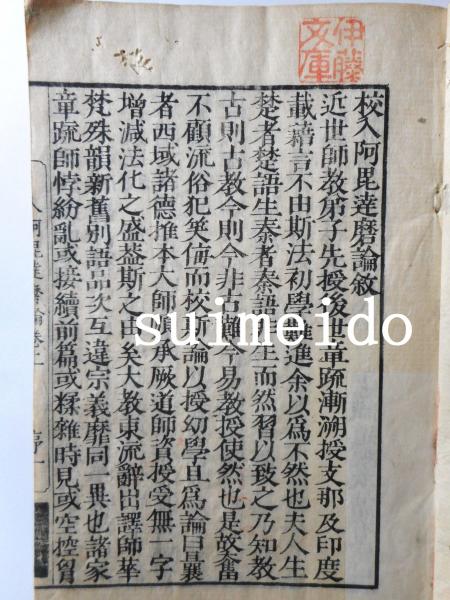 伊藤
文庫
校入阿毘達磨論敘
近世師教弟子先授後世章疏漸溯授支那及印度
載藉言不由斯法初學難進余以為不然也夫人生
楚者楚語生秦者秦語非生而然習以致之乃知教
古則古教今則今非古難今易教授使然也是故奮
不顧流俗犯笑侮而校斯論以授幼學且為論曰曩
者西域諸德推本大師源承厥道師資授受無一字
增減法化之盛蓋斯之由矣大教東流辭出譯師華
梵殊韻新舊別語品次互違宗義靡同一異也諸家
章疏師悖紛亂或接續前篇或糅雜時見或空控胷
入阿毘達磨論卷上 序 一
suimeido